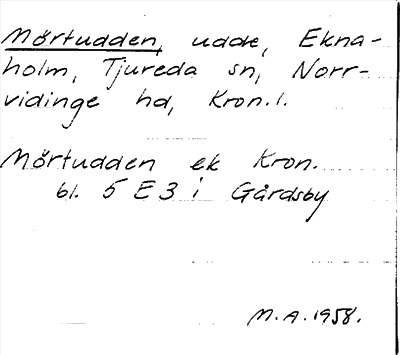 Mörtudden, udde, Ekna-
holm, Tjureda sn, Norr-
vidinge hd, Kron. l.
Mörtudden ek Kron.
bl. 5 E 3 i Gårdsby
M.A. 1958.